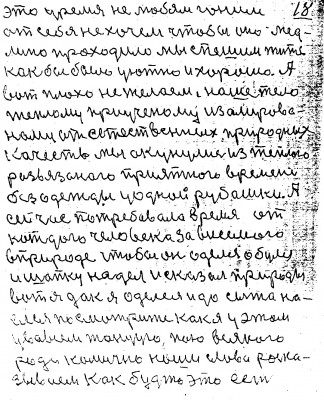 18.
это время не любям гоним
от себя не хочем чтобы оно мед-
лино проходило мы спешим жить
как бы было уютно и хорошо. А
вот плохо не желаем. наше тело
тёплому приученому изалирова-
ному от естественных природных
качеств мы окунулис из тёплого
развязаного приятного времени
без одежды у одной рубашки. А
сейчас потребавала время от
каждого человека зависемого
в природе чтобы он оделся обулся
и шапку надел и сказал природы
вот я так я оделся и до сыта на-
елся посмотрите как я у этом
уваем танцую, пою всякого
роди колично наши слова рока-
зываем как будто это есть